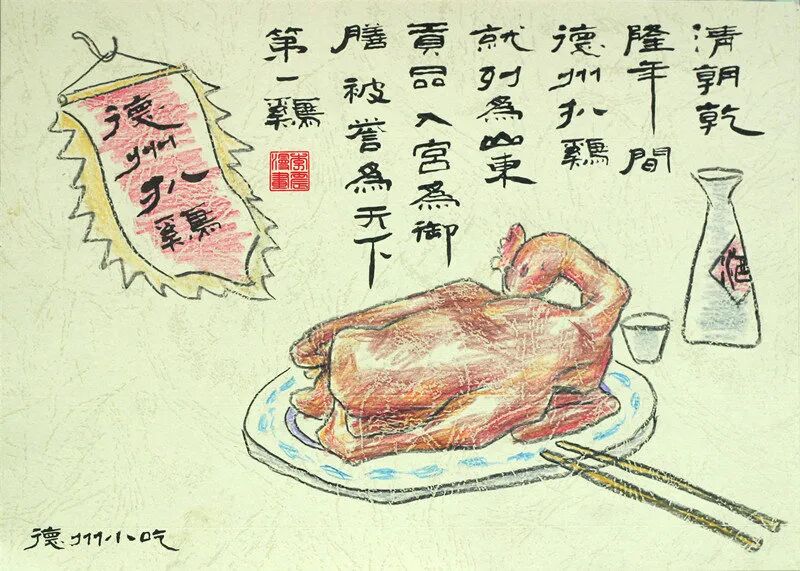 清朝乾
隆年间
德州扒鷄
就列為山東
貢品入宮為御
膳被誉為天下
第一鷄
德州扒鷄
酒
德州小吃